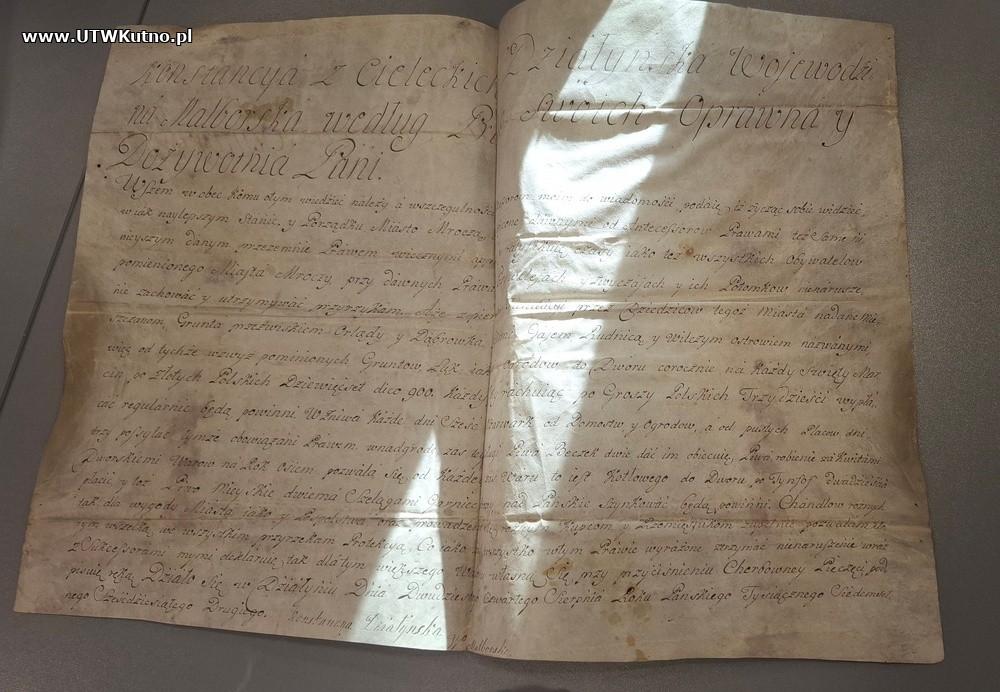 www.UTWKutno.pl
Konstancya z Cieleckich Działyńska Wojewodzi
na Malborska według Swoich Oprawna y
Dożywotnia Pani.
Wszem w obec komu otym wiedzieć należy á wszczegulności moim do wiadomości podáię, iż życząc sobie widzieć
wiak naylepszym Stanie, y Porządku Miasto Mroczą od Antecessorow Prawami też same ni
nieyszym danym przezemnie Prawem wiecznymi iako też wszystkich Obywatelow
pomienionego Miasta Mroczy, przy dawnych y zwyczájach y ich Potomkow nienarusze,
nie zachować y utrzymywać przyrzekam, Aże przez Dziedzicow tegoż Miasta nadane Mie
szczanom, Grunta przezwiskiem Orlądy y Dąbrowka Gajem Rudnica, y Wilczym ostrowiem nazwanymi
więc od tychże wzwyż pomienionych Gruntow Łąk iak Ogrodow do Dworu corocznie na Każdy Swięty Mar
cin po Złotych Polskich Dziewięcset dico 900. Każdy rachuiąc po Groszy Polskich Trzydzieści wypła,
cać regularnie będą powinni Wżniwa Każde dni Sześć od Domostw y Ogrodow, a od pustych Placow dni
trzy possyłać tymże obowiązani Prawem, wnadgrodę zas Piwa Beczek dwie dać im obiecuię, Piwa robienie zakwitami
Dworskiemi Warow na Rok osiem pozwala się, od Każdego Waru to iest Kotłowego do Dworu po Tynfow Dwadzieścia
płacić y toż Piwo Mieyskie dwiema Szelągami nad Pańskie Szynkować będą powinni. Chandlow roznych
tak dla wygody Miasta iako y Pospolstwa oraz roznym Kupcom y Rzemieslnikom pozwalam
rym wszelką we wszystkim przyrzekam Protekcyą, Co iako wszystko wtym Prawie wyrażone trzymać nienaruszenie wraz
z Sukcessorami mymi deklaruię tak dlatym większego Waloru własną się przy przyciśnieniu Cherbowney Pieczęci pod
pisuię ręką Działo się w Działyniu Dnia Dwudziestego Czwartego Sierpnia Roku Pańskiego Tysiącznego Siedemset,
nego Sześćdziesiątego Drugiego. Konstancya Działynska